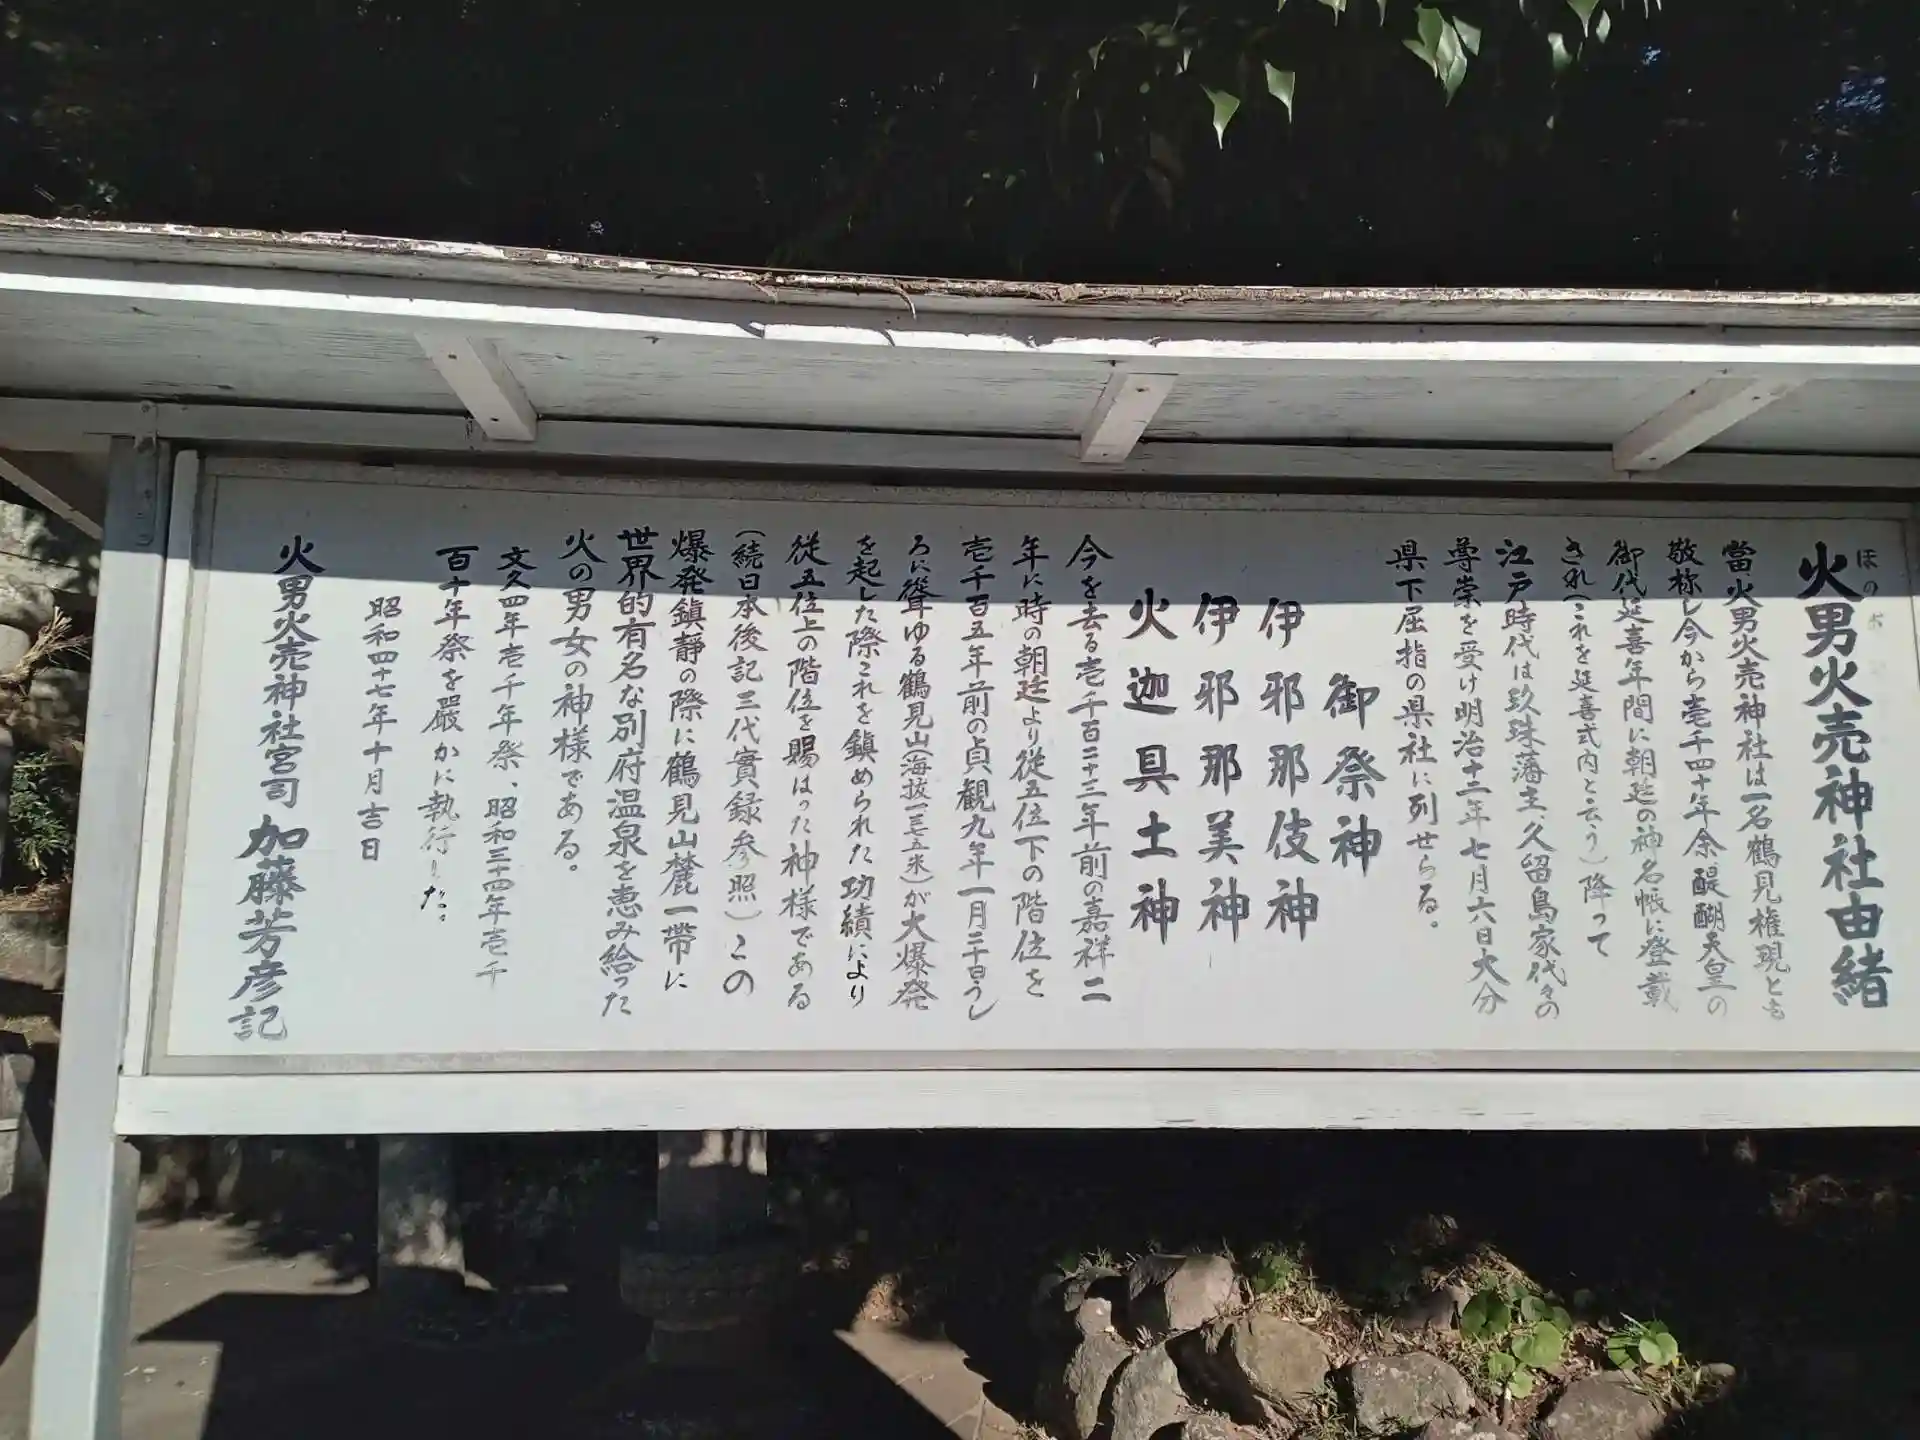 火男火売神社由緒
ほのお
當火男火売神社は一名鶴見権現とも
敬称し今から壱千四十年余醍醐天皇の
御代延喜年間に朝廷の神名帳に登載
され(これを延喜式内と云う)降って
江戸時代は玖珠藩主、久留島家代々の
尊崇を受け明治十二年七月六日大分
県下屈指の県社に列せらる。
御祭神
伊邪那伎神
伊邪那美神
火迦具土神
今を去る壱千百二十三年前の嘉祥二
年に時の朝廷より従五位下の階位を
壱千百五年前の貞観九年一月二十日うし
ろに聳ゆる鶴見山(海抜一三七五米)が大爆発
を起した際これを鎮められた功績により
従五位上の階位を賜はった神様である
(続日本後記三代實録参照)この
爆発鎮静の際に鶴見山麓一帯に
世界的有名な別府温泉を恵み給った
火の男女の神様である。
文久四年壱千年祭、昭和三十四年壱千
百十年祭を嚴かに執行した。
昭和四十七年十月吉日
火男火売神社宮司 加藤芳彦記